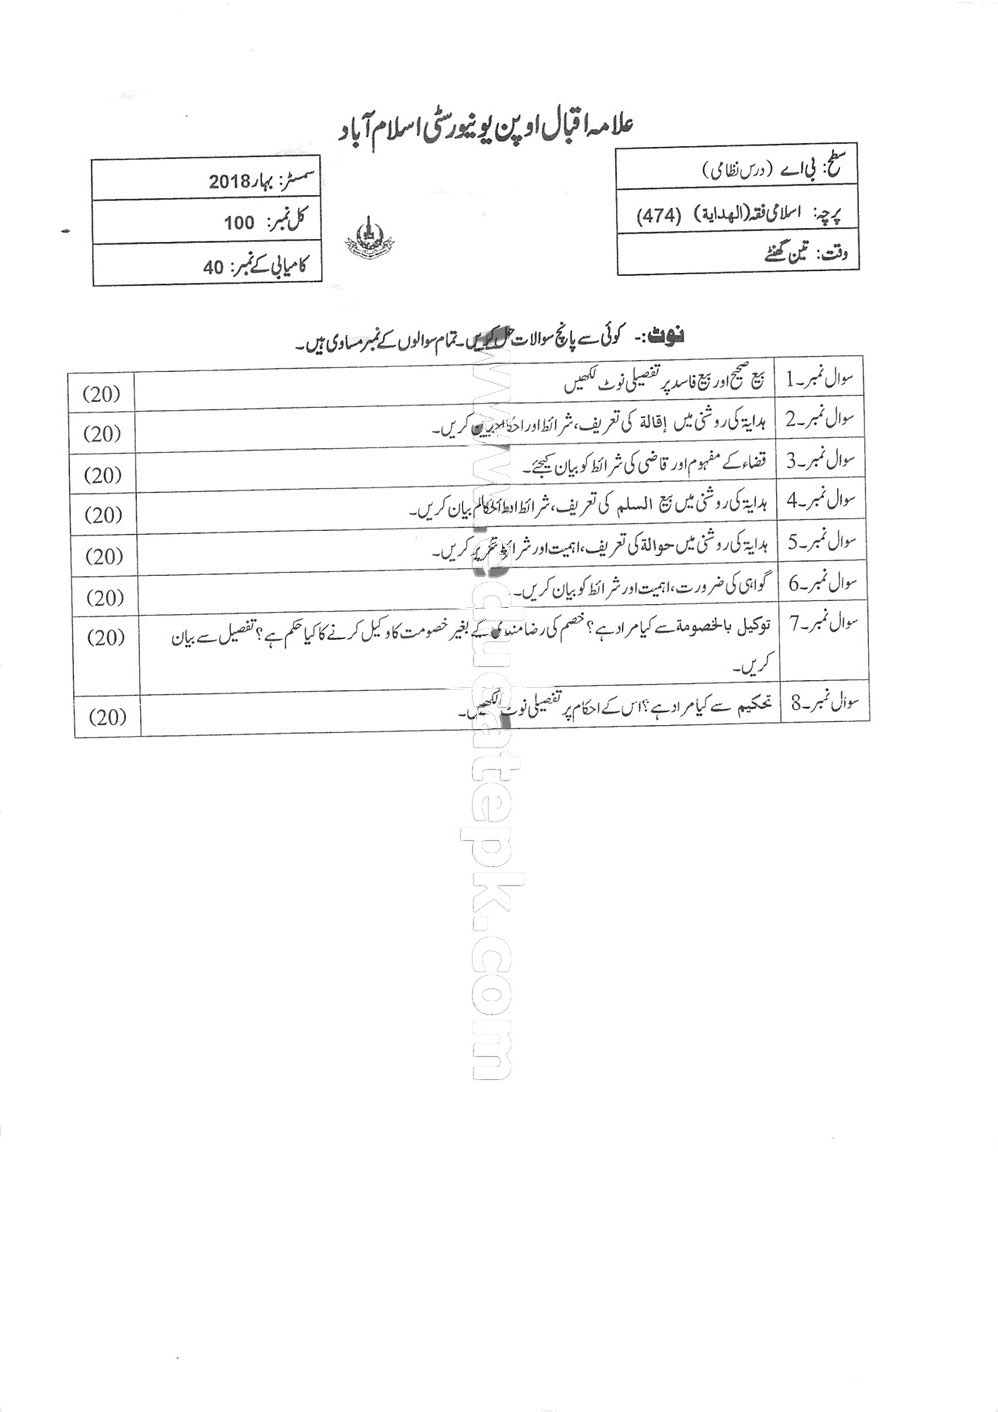 علامہ اقبال اوپن یونیورسٹی اسلام آباد
سطح: بی اے (درس نظامی)
پرچہ: اسلامی فقہ (الهداية) (474)
وقت: تین گھنٹے
سمسٹر: بہار 2018
کل نمبر: 100
کامیابی کے نمبر: 40
نوٹ:- کوئی سے پانچ سوالات حل کریں۔ تمام سوالوں کے نمبر مساوی ہیں۔
سوال نمبر۔1 بیع صحیح اور بیع فاسد پر تفصیلی نوٹ لکھیں (20)
سوال نمبر۔2 ہدایة کی روشنی میں إقالة کی تعریف، شرائط اور احکام بیان کریں۔ (20)
سوال نمبر۔3 قضاء کے مفہوم اور قاضی کی شرائط کو بیان کیجئے۔ (20)
سوال نمبر۔4 ہدایة کی روشنی میں بیع السلم کی تعریف، شرائط اور احکام بیان کریں۔ (20)
سوال نمبر۔5 ہدایة کی روشنی میں حوالة کی تعریف، اہمیت اور شرائط تحریر کریں۔ (20)
سوال نمبر۔6 گواہی کی ضرورت، اہمیت اور شرائط کو بیان کریں۔ (20)
سوال نمبر۔7 توکیل بالخصومة سے کیا مراد ہے؟ خصم کی رضامندی کے بغیر خصومت کا وکیل کرنے کا کیا حکم ہے؟ تفصیل سے بیان (20)
کریں۔
سوال نمبر۔8 تحکیم سے کیا مراد ہے؟ اس کے احکام پر تفصیلی نوٹ لکھیں۔ (20)
www.educatepk.com